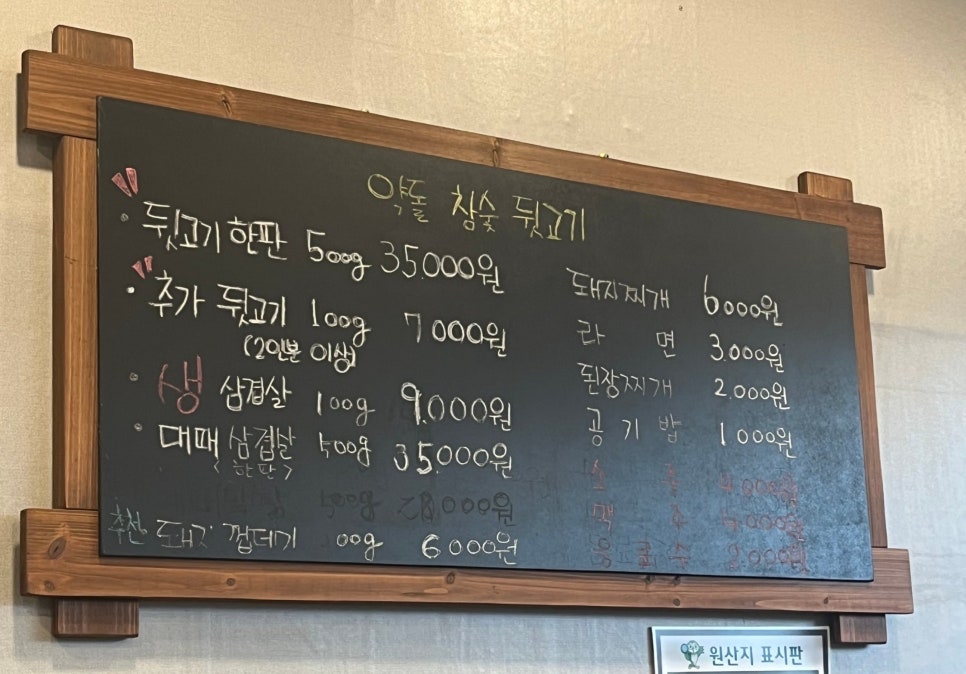 약돌 참숯 뒷고기
뒷고기 한판 500g 35.000원
추가 뒷고기 100g 7000원
(2인분 이상)
생 삼겹살 100g 9.000원
대패 삼겹살 500g 35.000원
(한판)
500g 28,000원
추천 돼지 껍데기 200g 6000원
돼지찌개 6000원
라 면 3.000원
된장찌개 2.000원
공 기 밥 1000원
소 주 4000원
맥 주 4000원
음 료 수 2000원
원산지 표시판